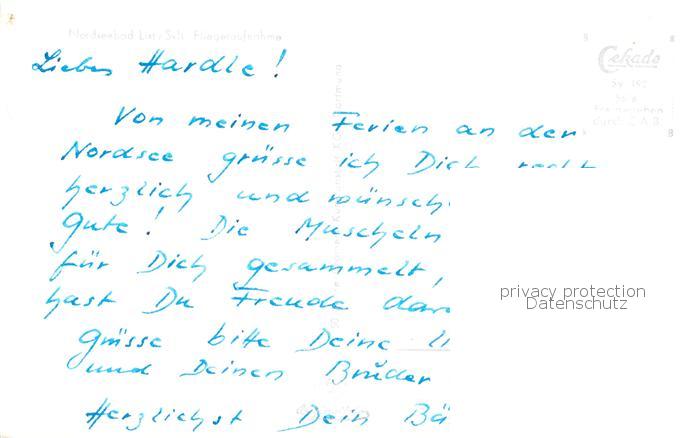 Nordseebad List / Sylt Fliegeraufnahme
Cekade
Lieber Hardle!
Von meinen Ferien an der
Nordsee grüsse ich Dich recht
herzlich und wünsch
Gute! Die Muscheln
für Dich gesammelt,
hast Du Freude dar
Grüsse bitte Deine
und Deinen Bruder
Herzlichst Dein Bä
privacy protection
Datenschutz